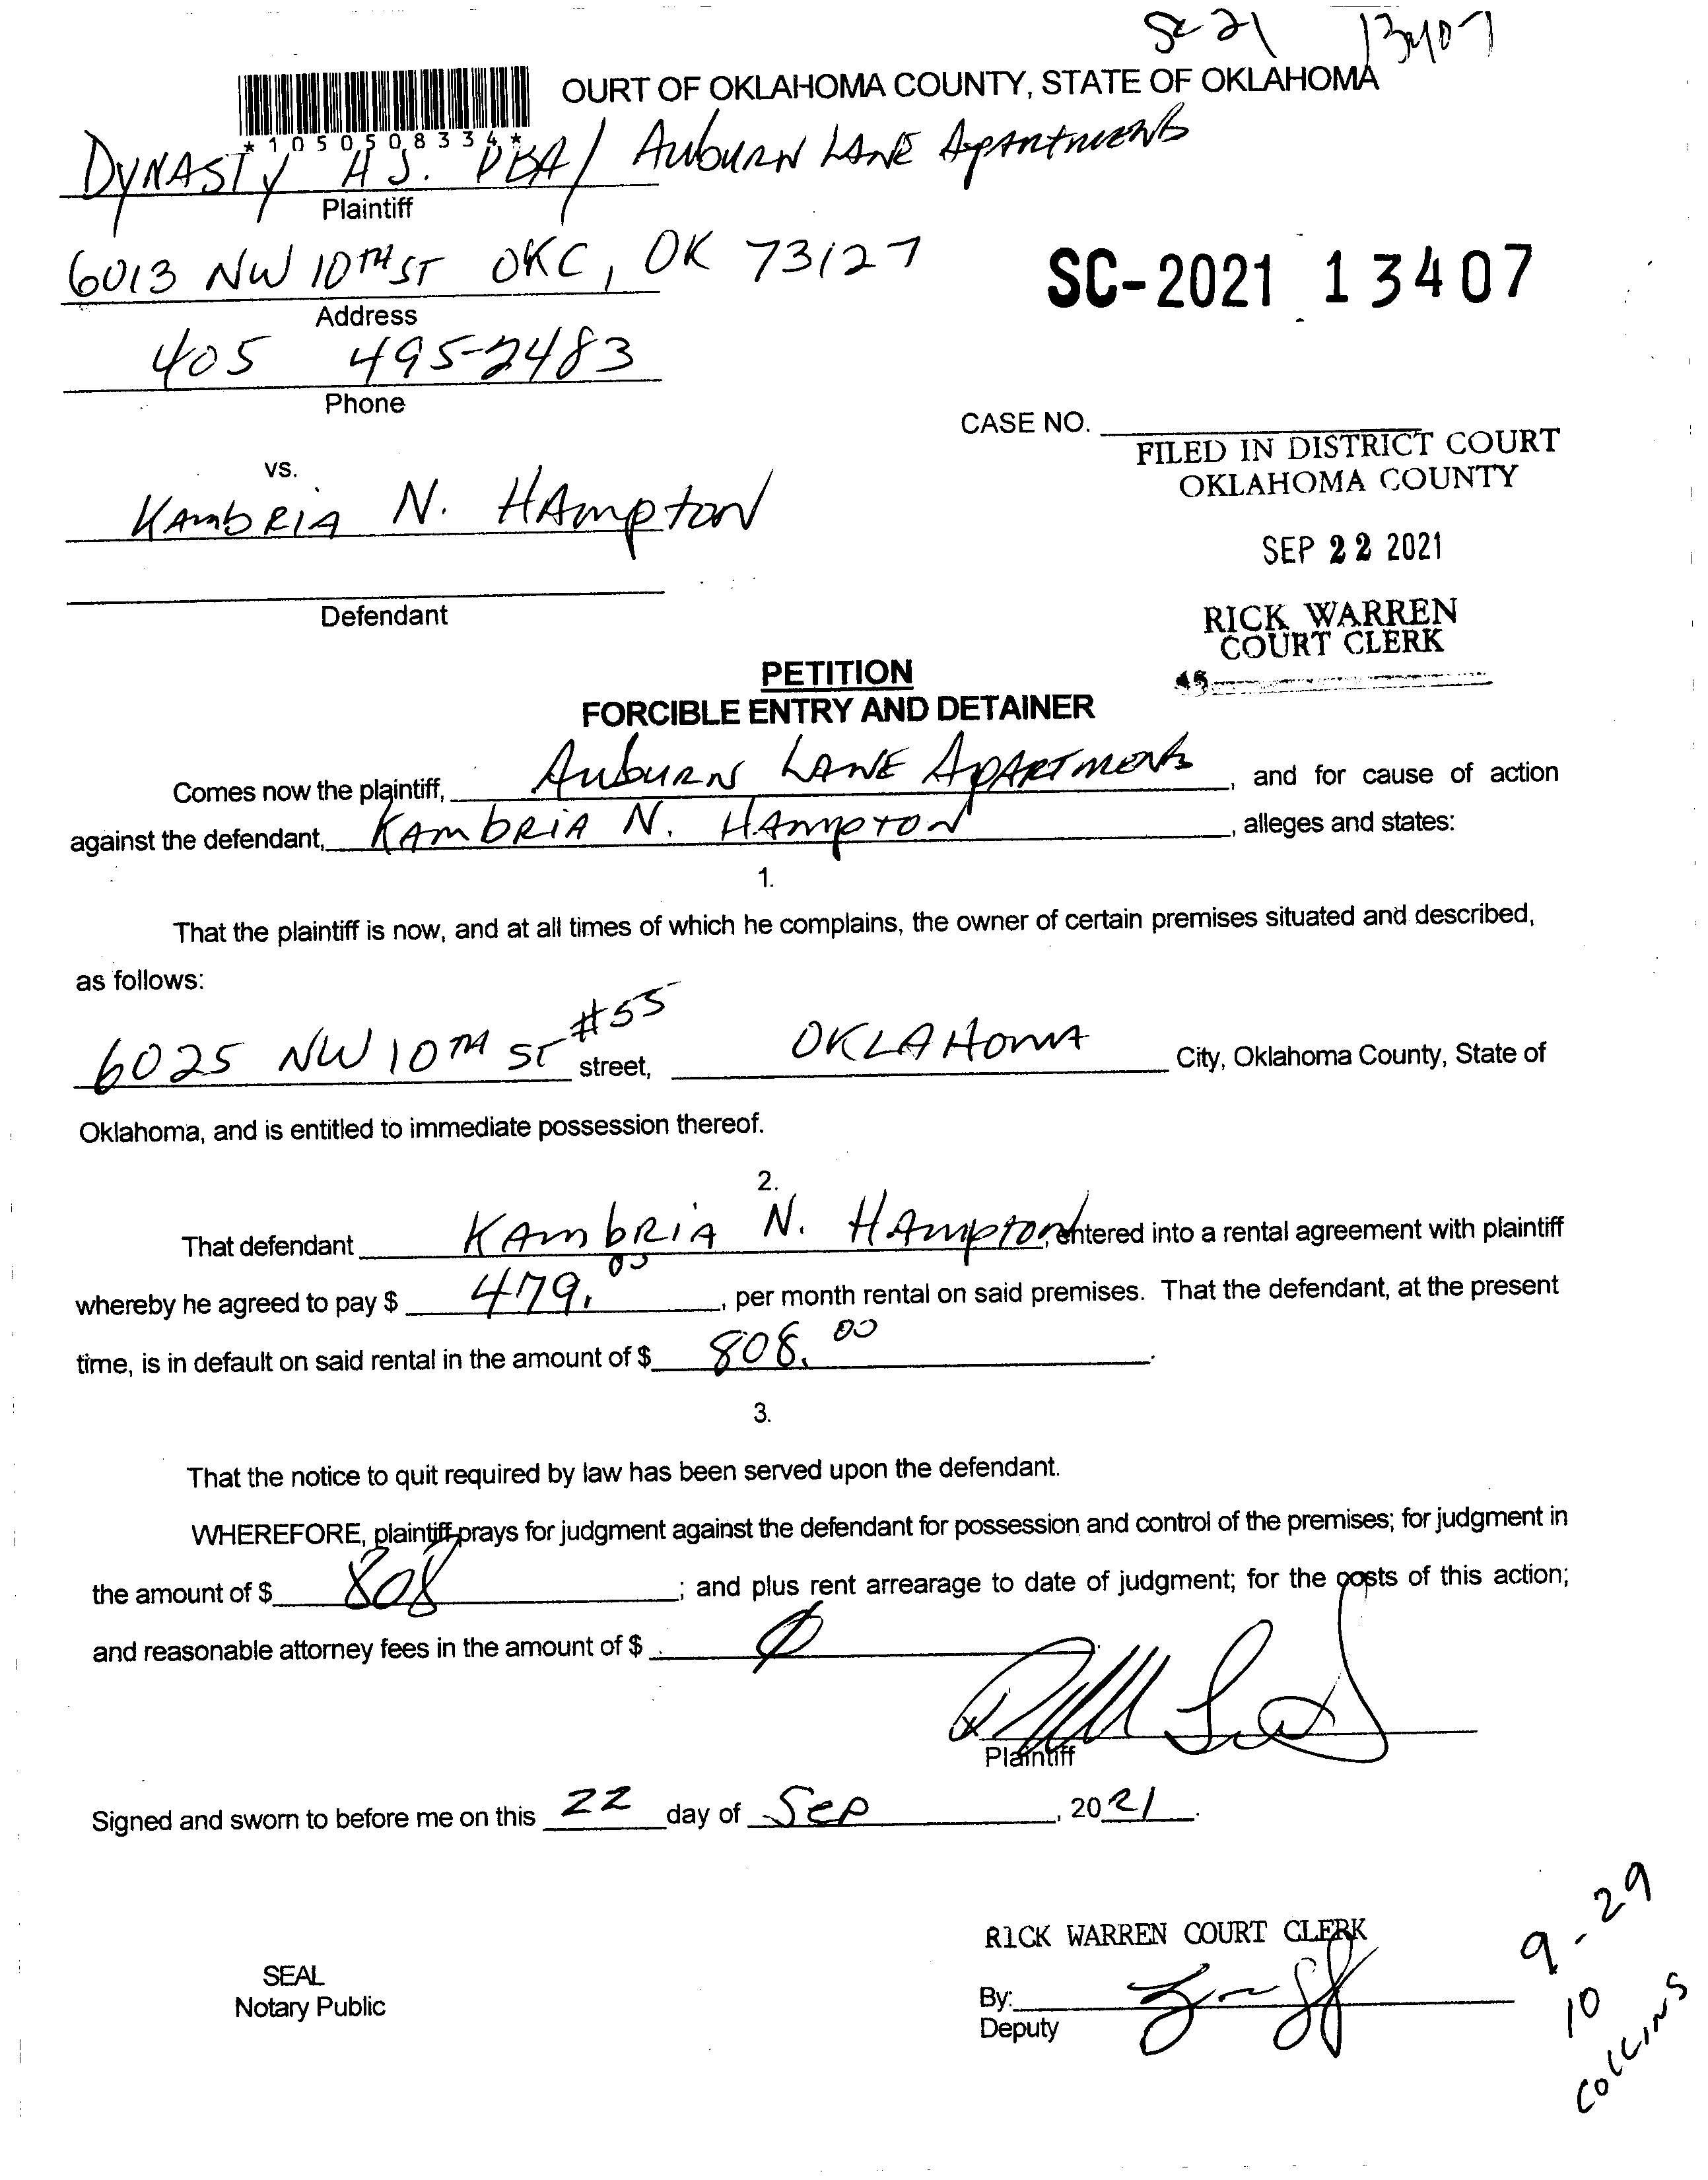 SC-21 13407
OURT OF OKLAHOMA COUNTY, STATE OF OKLAHOMA
*1050508334*
DYNASTY HJ. DBA/ AUBURN LANE APARTMENTS
Plaintiff
6013 NW 10TH ST OKC, OK 73127
Address
SC-2021 13407
405 495-2483
Phone
CASE NO.
FILED IN DISTRICT COURT
OKLAHOMA COUNTY
vs.
KAMBRIA N. HAMPTON
SEP 22 2021
Defendant
RICK WARREN
COURT CLERK
45
PETITION
FORCIBLE ENTRY AND DETAINER
Comes now the plaintiff, AUBURN LANE APARTMENTS, and for cause of action
against the defendant, KAMBRIA N. HAMPTON, alleges and states:
1.
That the plaintiff is now, and at all times of which he complains, the owner of certain premises situated and described,
as follows:
6025 NW 10TH ST #55 street, OKLAHOMA City, Oklahoma County, State of
Oklahoma, and is entitled to immediate possession thereof.
2.
That defendant KAMBRIA N. HAMPTON, entered into a rental agreement with plaintiff
whereby he agreed to pay $ 479.00, per month rental on said premises. That the defendant, at the present
time, is in default on said rental in the amount of $ 808.00.
3.
That the notice to quit required by law has been served upon the defendant.
WHEREFORE, plaintiff prays for judgment against the defendant for possession and control of the premises; for judgment in
the amount of $ 808; and plus rent arrearage to date of judgment; for the costs of this action;
and reasonable attorney fees in the amount of $ 0
X
Plaintiff
Signed and sworn to before me on this 22 day of SEP, 2021.
RICK WARREN COURT CLERK
SEAL
Notary Public
By:
Deputy
9-29
10
COLLINS